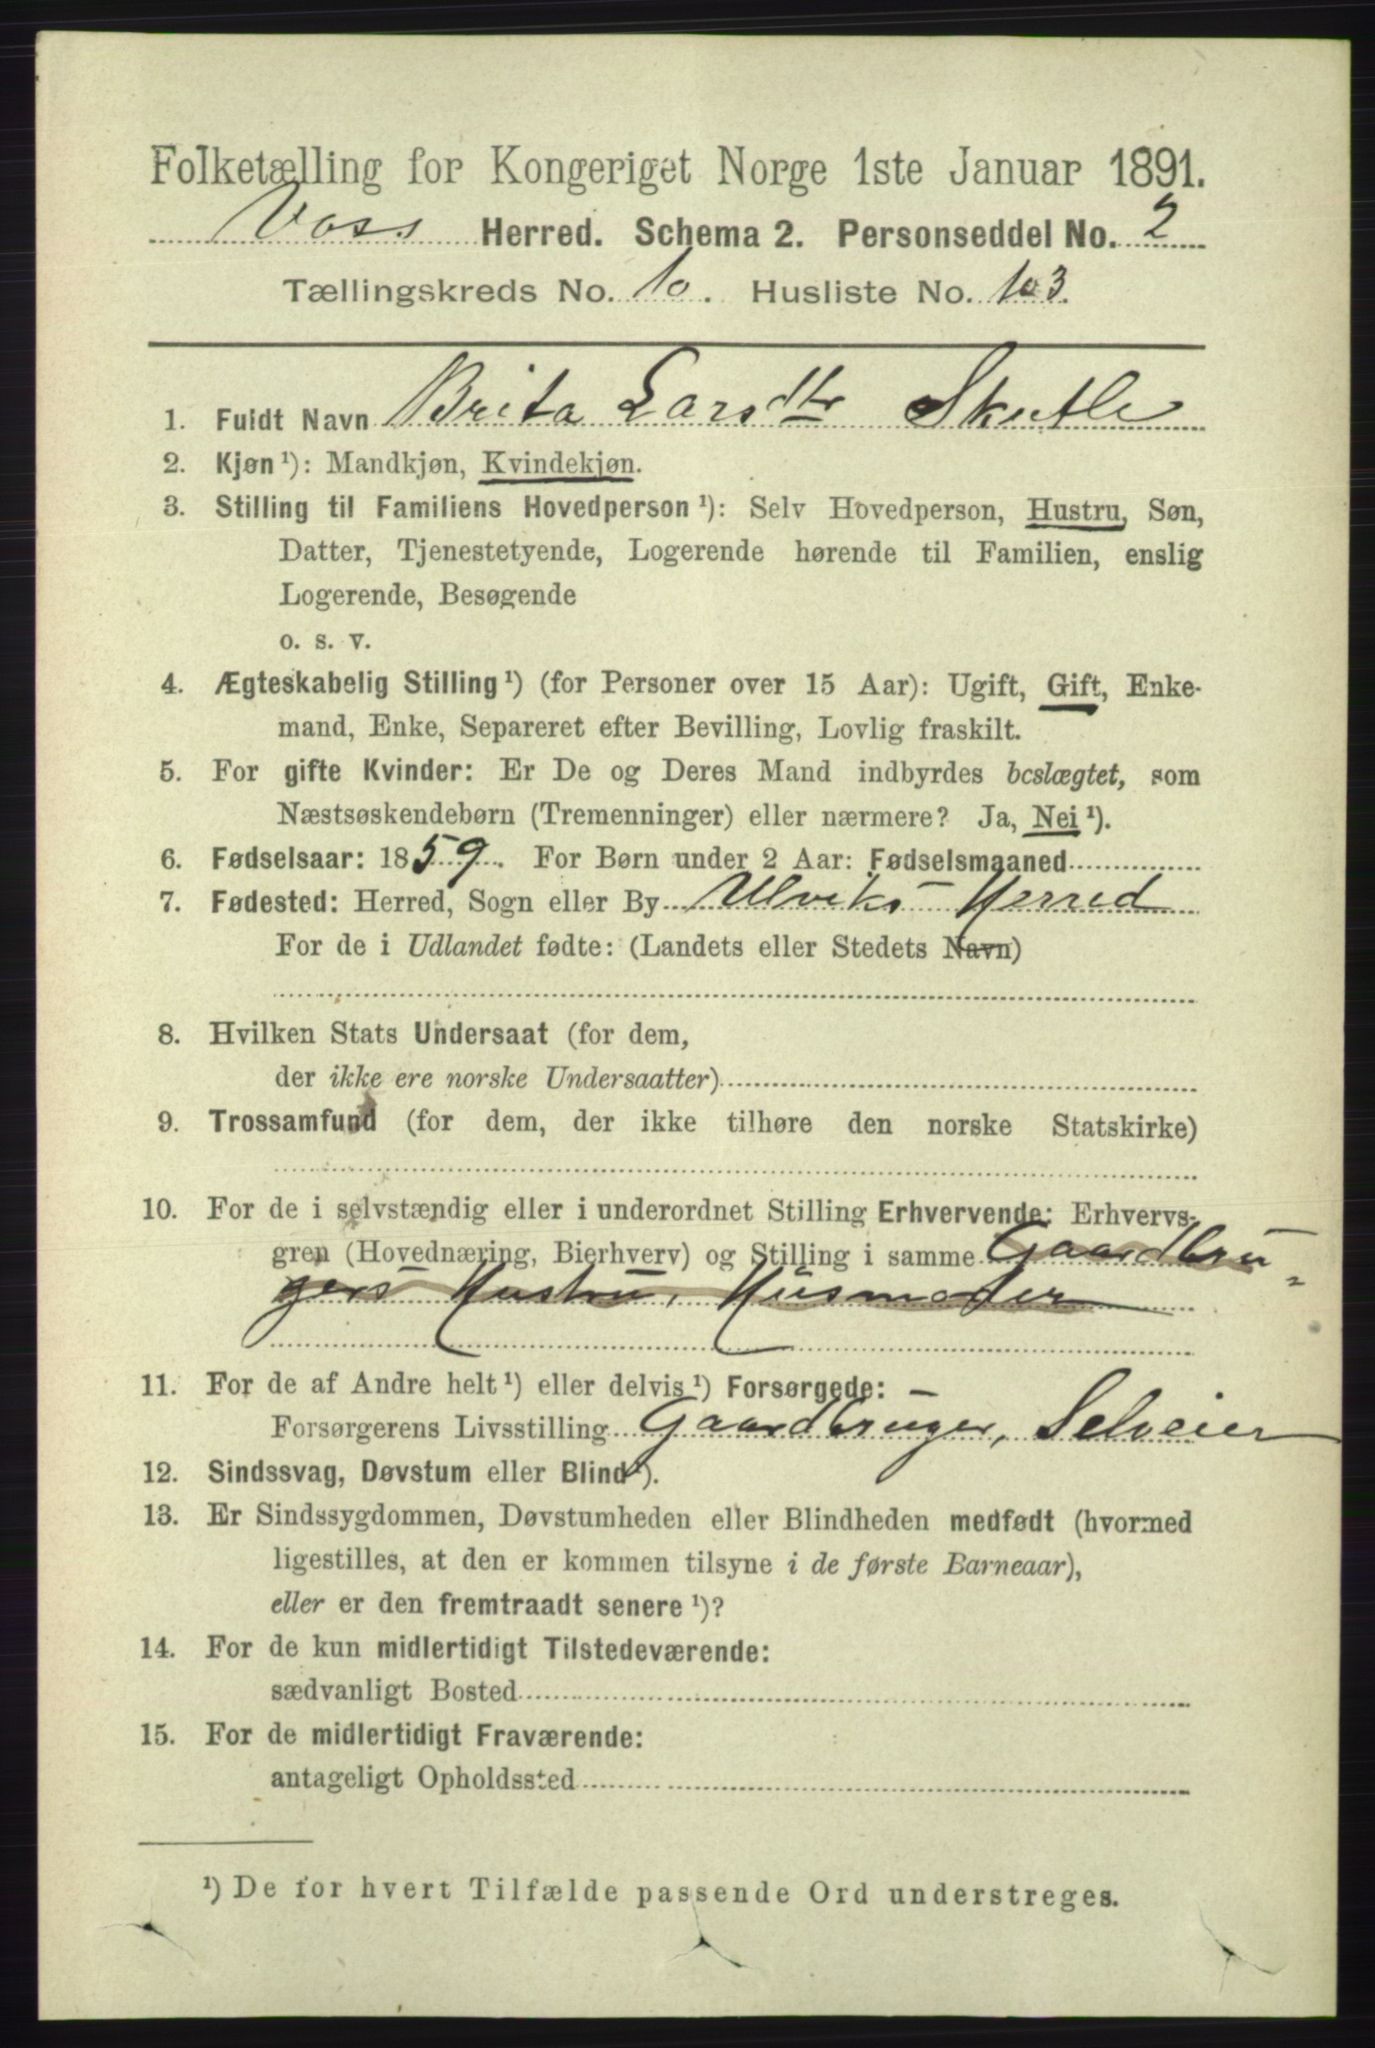 Folketælling for Kongeriget Norge 1ste Januar 1891.
Voss Herred. Schema 2. Personseddel No. 2
Tællingskreds No. 10. Husliste No. 103.
1. Fuldt Navn Brita Larsdtr Skutle
2. Kjøn ¹): Mandkjøn, Kvindekjøn.
3. Stilling til Familiens Hovedperson ¹): Selv Hovedperson, Hustru, Søn,
Datter, Tjenestetyende, Logerende hørende til Familien, enslig
Logerende, Besøgende
o. s. v.
4. Ægteskabelig Stilling ¹) (for Personer over 15 Aar): Ugift, Gift, Enke-
mand, Enke, Separeret efter Bevilling, Lovlig fraskilt.
5. For gifte Kvinder: Er De og Deres Mand indbyrdes beslægtet, som
Næstsøskendebørn (Tremenninger) eller nærmere? Ja, Nei ¹).
6. Fødselsaar: 1859. For Børn under 2 Aar: Fødselsmaaned
7. Fødested: Herred, Sogn eller By Ulviks Herred
For de i Udlandet fødte: (Landets eller Stedets Navn)
8. Hvilken Stats Undersaat (for dem,
der ikke ere norske Undersaatter)
9. Trossamfund (for dem, der ikke tilhøre den norske Statskirke)
10. For de i selvstændig eller i underordnet Stilling Erhvervende: Erhvervs-
gren (Hovednæring, Bierhverv) og Stilling i samme Gaardbru-
gers Hustru, Husmoder
11. For de af Andre helt ¹) eller delvis ¹) Forsørgede: –
Forsørgerens Livsstilling Gaardbruger, Selveier
12. Sindssvag, Døvstum eller Blind ¹).
13. Er Sindssygdommen, Døvstumheden eller Blindheden medfødt (hvormed
ligestilles, at den er kommen tilsyne i de første Barneaar),
eller er den fremtraadt senere ¹)?
14. For de kun midlertidigt Tilstedeværende:
sædvanligt Bosted
15. For de midlertidigt Fraværende:
antageligt Opholdssted
¹) De for hvert Tilfælde passende Ord understreges.